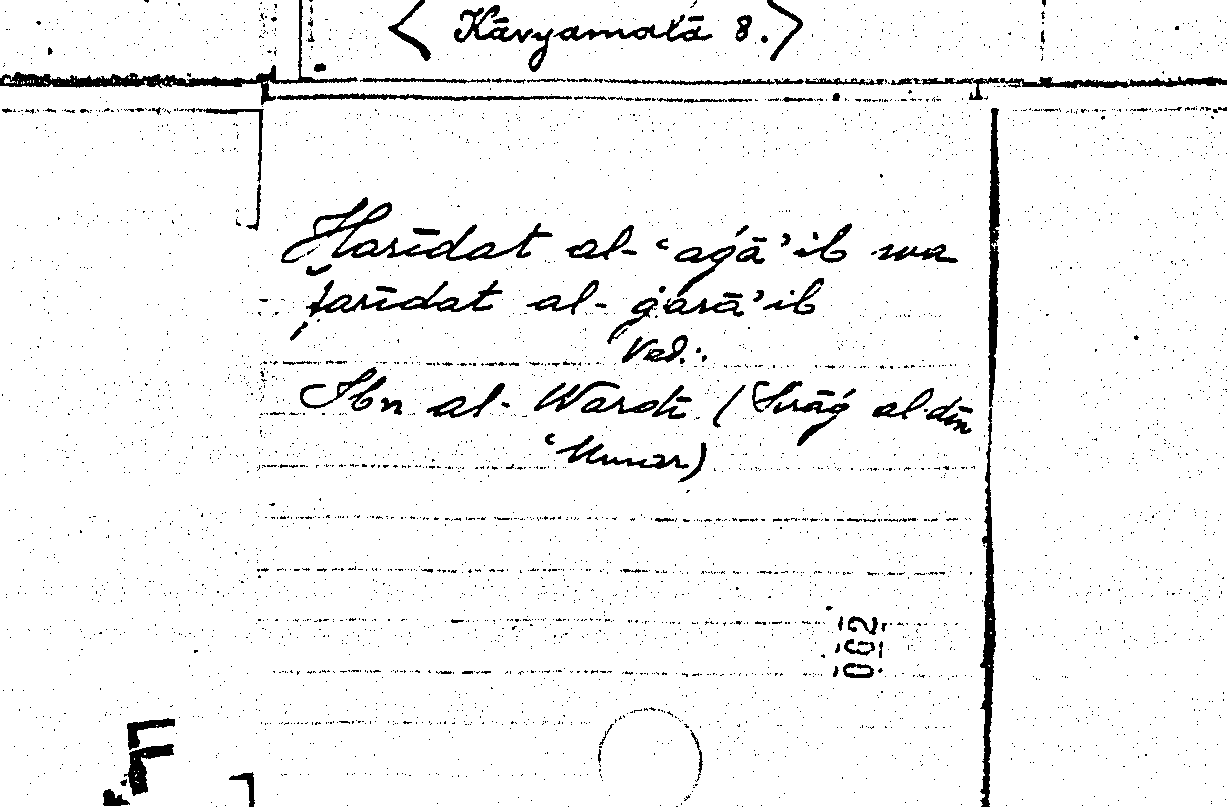 < Kāvyamālā 8. >
Ḫarīdat al-ʿaǧā'ib wa
farīdat al-ġarā'ib
Ved.:
Ibn al-Wardī (Sirāǧ al-dīn
ʿUmar)
062